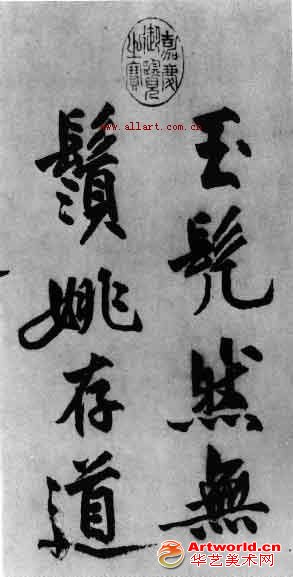 嘉慶御覽之寶
www.allart.com.cn
玉髡然無
鬚姚存道
Artworld.cn
华艺美术网